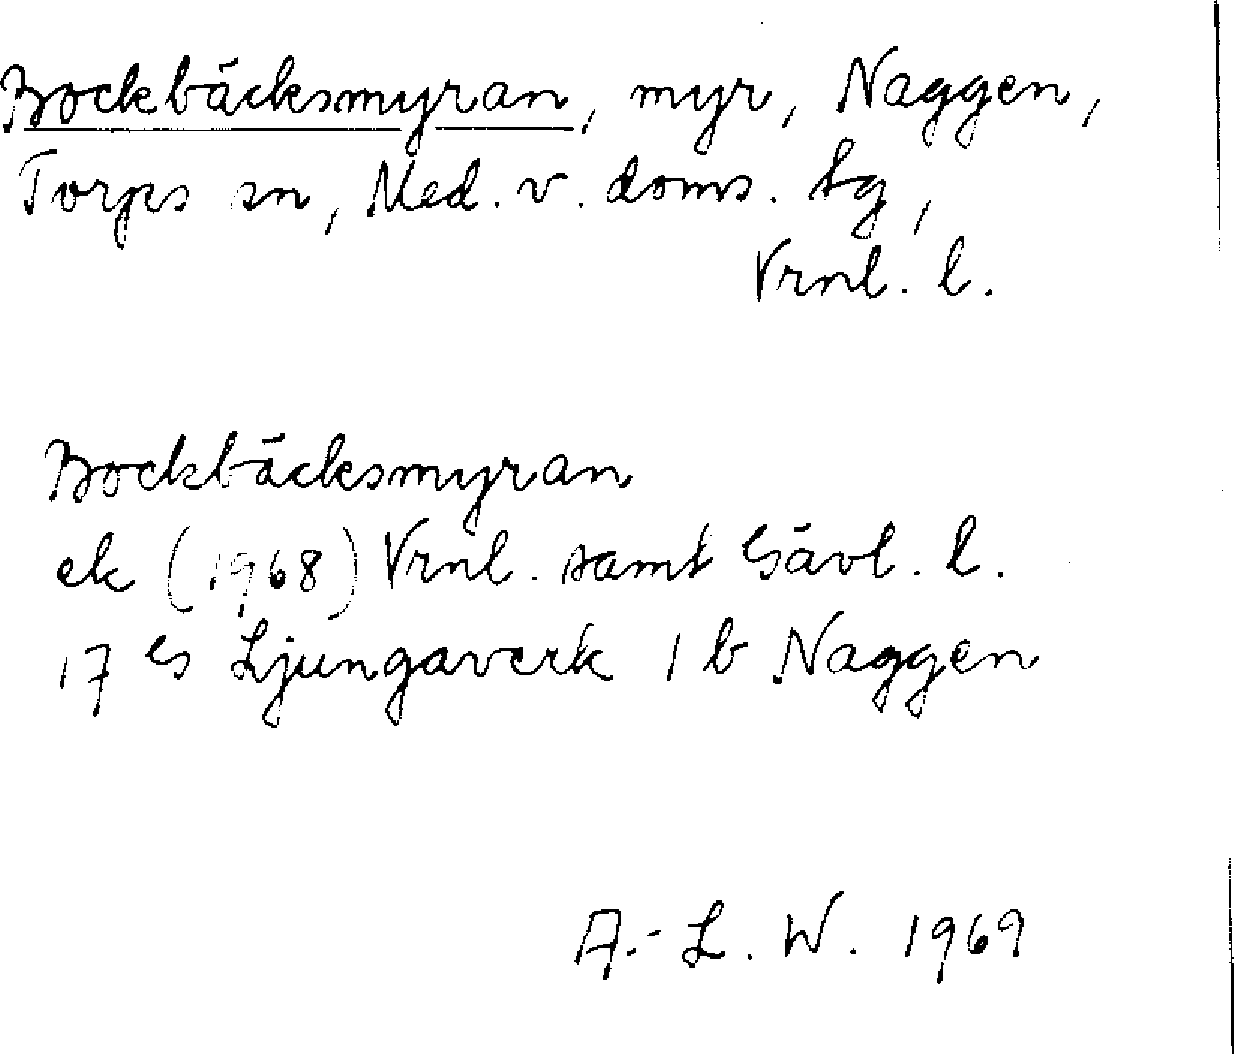 Bockbäcksmyran, myr, Naggen,
Torps sn, Med. v. doms. tg,
Vrnl. l.
Bockbäcksmyran
ek (1968) Vrnl. samt Gävl. l.
17 G Ljungaverk 1 b Naggen
A.-L. W. 1969